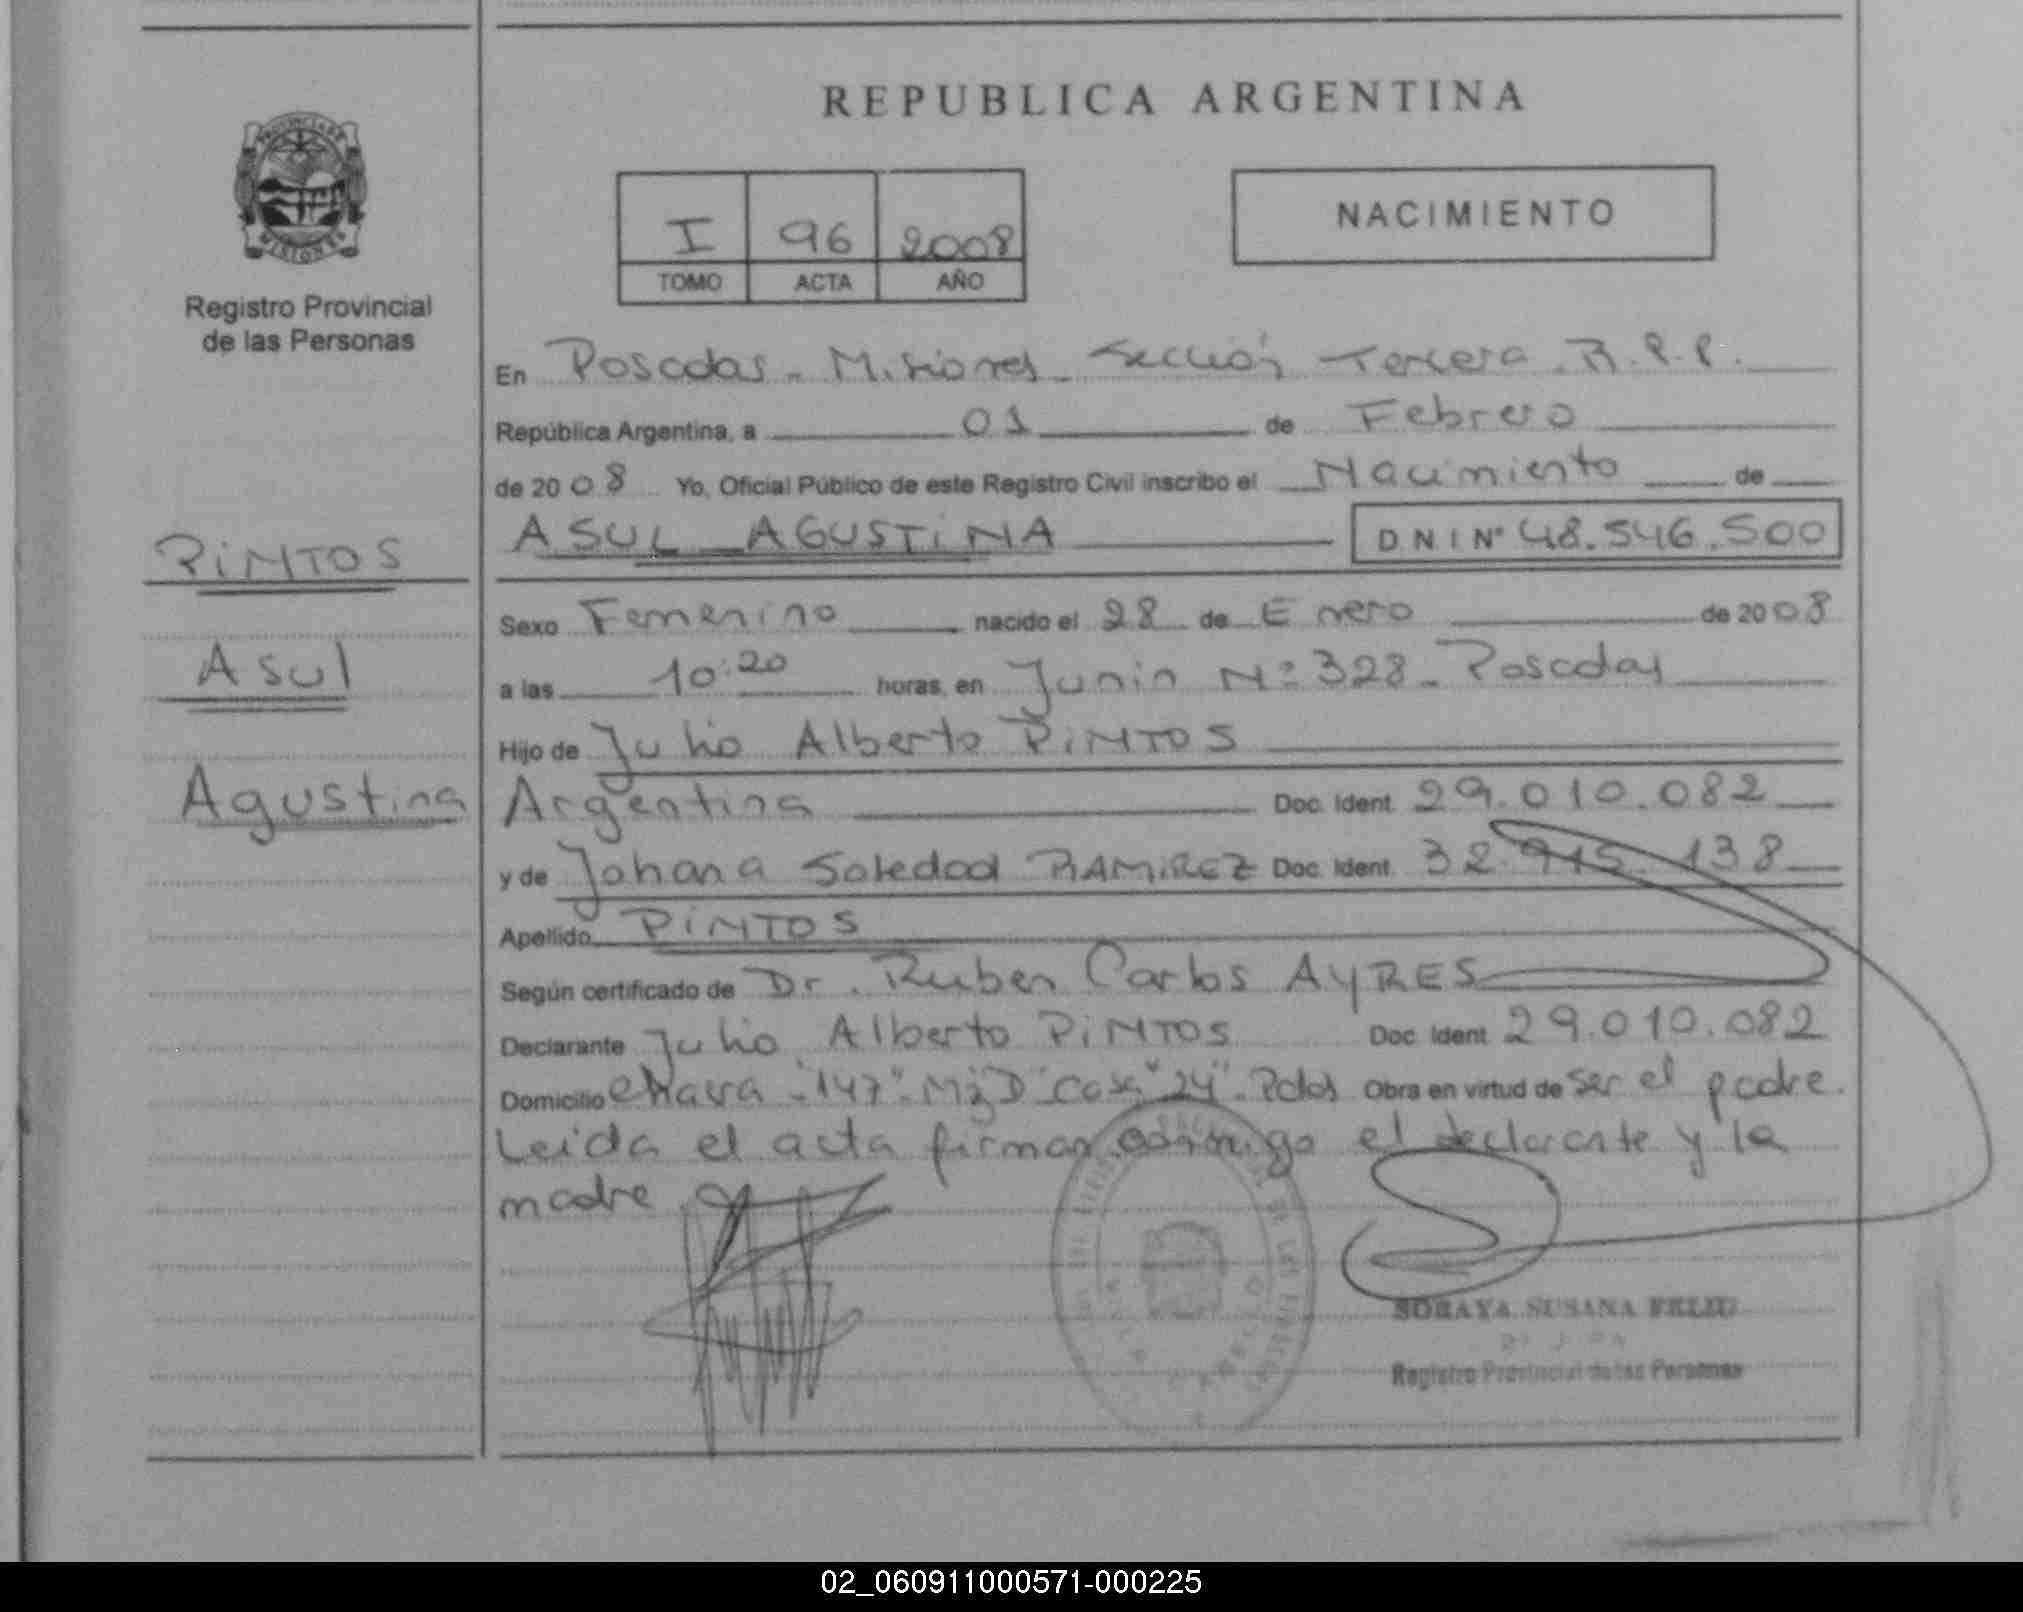 REPUBLICA ARGENTINA
PROVINCIA DE
MISIONES
Registro Provincial
de las Personas
I 96 2008
TOMO ACTA AÑO
NACIMIENTO
En Posadas - Misiones - Sección Tercera. R.P.P.
República Argentina, a 01 de Febrero
de 2008 Yo, Oficial Público de este Registro Civil inscribo el Nacimiento de
ASUL AGUSTINA DNI Nº 48.546.500
PINTOS
Asul
Agustina
Sexo Femenino nacido el 28 de Enero de 2008
a las 10:20 horas, en Junin Nº 328 - Posadas
Hijo de Julio Alberto PINTOS
Argentina Doc. Ident. 29.010.082
y de Johana Soledad RAMIREZ Doc. Ident. 32.915.138
Apellido PINTOS
Según certificado de Dr. Ruben Carlos AYRES
Declarante Julio Alberto PINTOS Doc. Ident 29.010.082
Domicilio Chacra - "147" - Mz "D" Casa "24" - Pdas Obra en virtud de ser el padre.
Leida el acta firman conmigo el declarante y la
madre
SORAYA SUSANA FELIU
Registro Provincial de las Personas
02_060911000571-000225